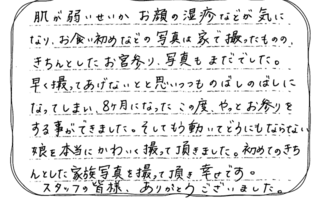 肌が弱いせいか お顔の湿疹などが気に
なり、お食い初めなどの写真は家で撮ったものの、
きちんとしたお宮参り、写真もまだでした。
早く撮ってあげないとと思いつつものばしのばしに
なってしまい、8ヶ月になったこの度、やっとお参りを
する事ができました。そしてもう動いてどうにもならない
娘を本当にかわいく撮って頂きました。初めてのきち
んとした家族写真を撮って頂き幸せです。
スタッフの皆様、ありがとうございました。